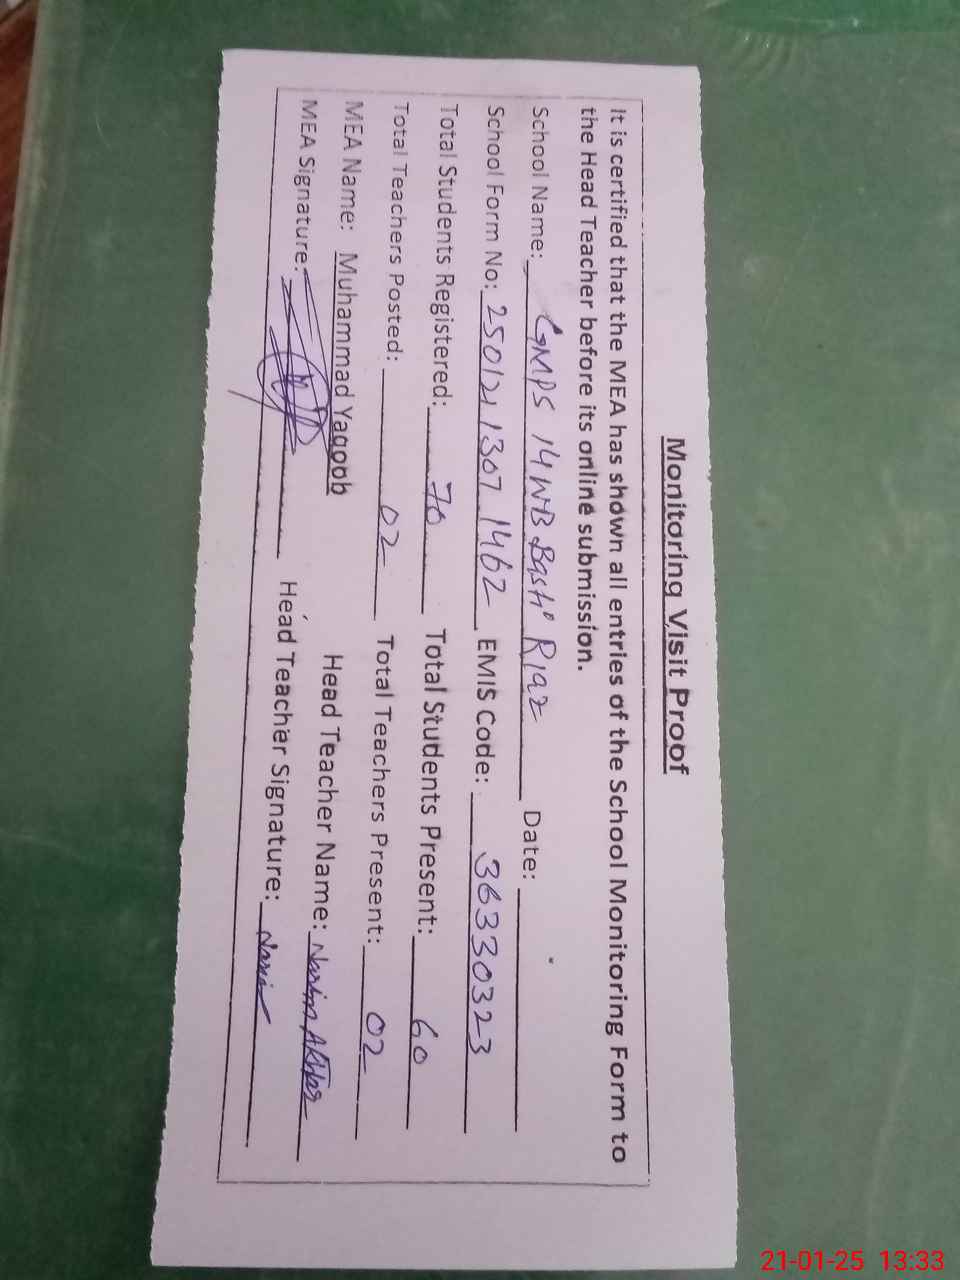 Monitoring Visit Proof
It is certified that the MEA has shown all entries of the School Monitoring Form to
the Head Teacher before its online submission.
School Name: GMPS 14WB Basti Riaz Date:
School Form No: 250121 1307 1462 EMIS Code: 36330323
Total Students Registered: 70 Total Students Present: 60
Total Teachers Posted: 02 Total Teachers Present: 02
MEA Name: Muhammad Yaqoob Head Teacher Name: Akhtar
MEA Signature: Head Teacher Signature:
21-01-25 13:33